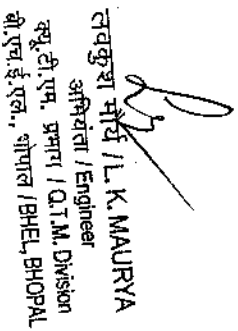 लवकुश मौर्य / L.K. MAURYA
अभियंता / Engineer
क्यू.टी.एम. प्रभाग / Q.T.M. Division
बी.एच.ई.एल., भोपाल / BHEL, BHOPAL